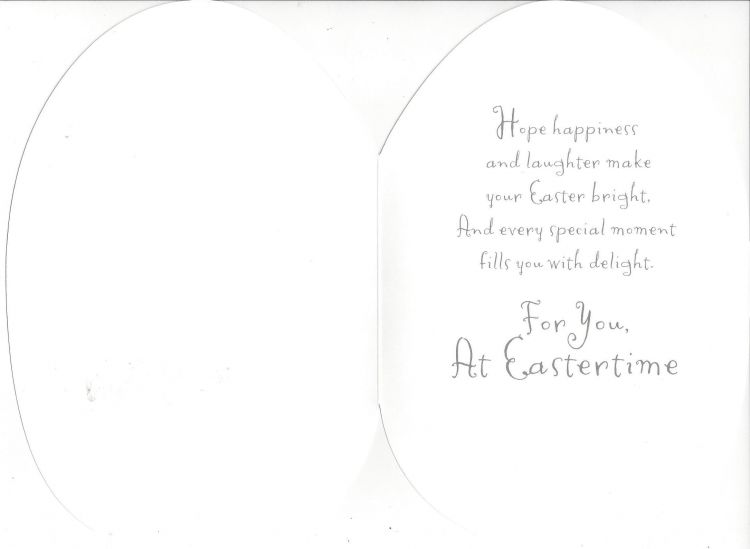 Hope happiness
and laughter make
your Easter bright,
And every special moment
fills you with delight.
For You,
At Eastertime